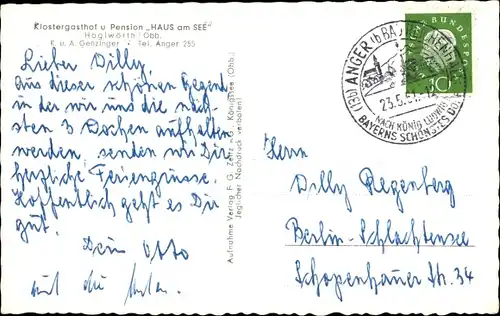 Klostergasthof u Pension „HAUS am SEE“
Höglwörth / Obb.
K. u. A. Genzinger • Tel. Anger 255
Lieber Dilly
aus dieser schönen Gegend
in der wir uns die näch-
sten 3 Wochen aufhalten
werden, senden wir Dir
herzliche Feriengrüsse.
Hoffentlich geht es Dir
gut.
Dein Otto
und die
Aufnahme Verlag F. G. Zeitz K.G. Königssee (Obb.)
(Jeglicher Nachdruck verboten)
(13b) ANGER üb BAD REICHENHALL
23.5.
NACH KÖNIG LUDWIG
BAYERNS SCHÖNSTES DORF
DEUTSCHE BUNDESPOST
10
Herrn
Dilly Regenberg
Berlin-Schlachtensee
Schopenhauer Str. 34